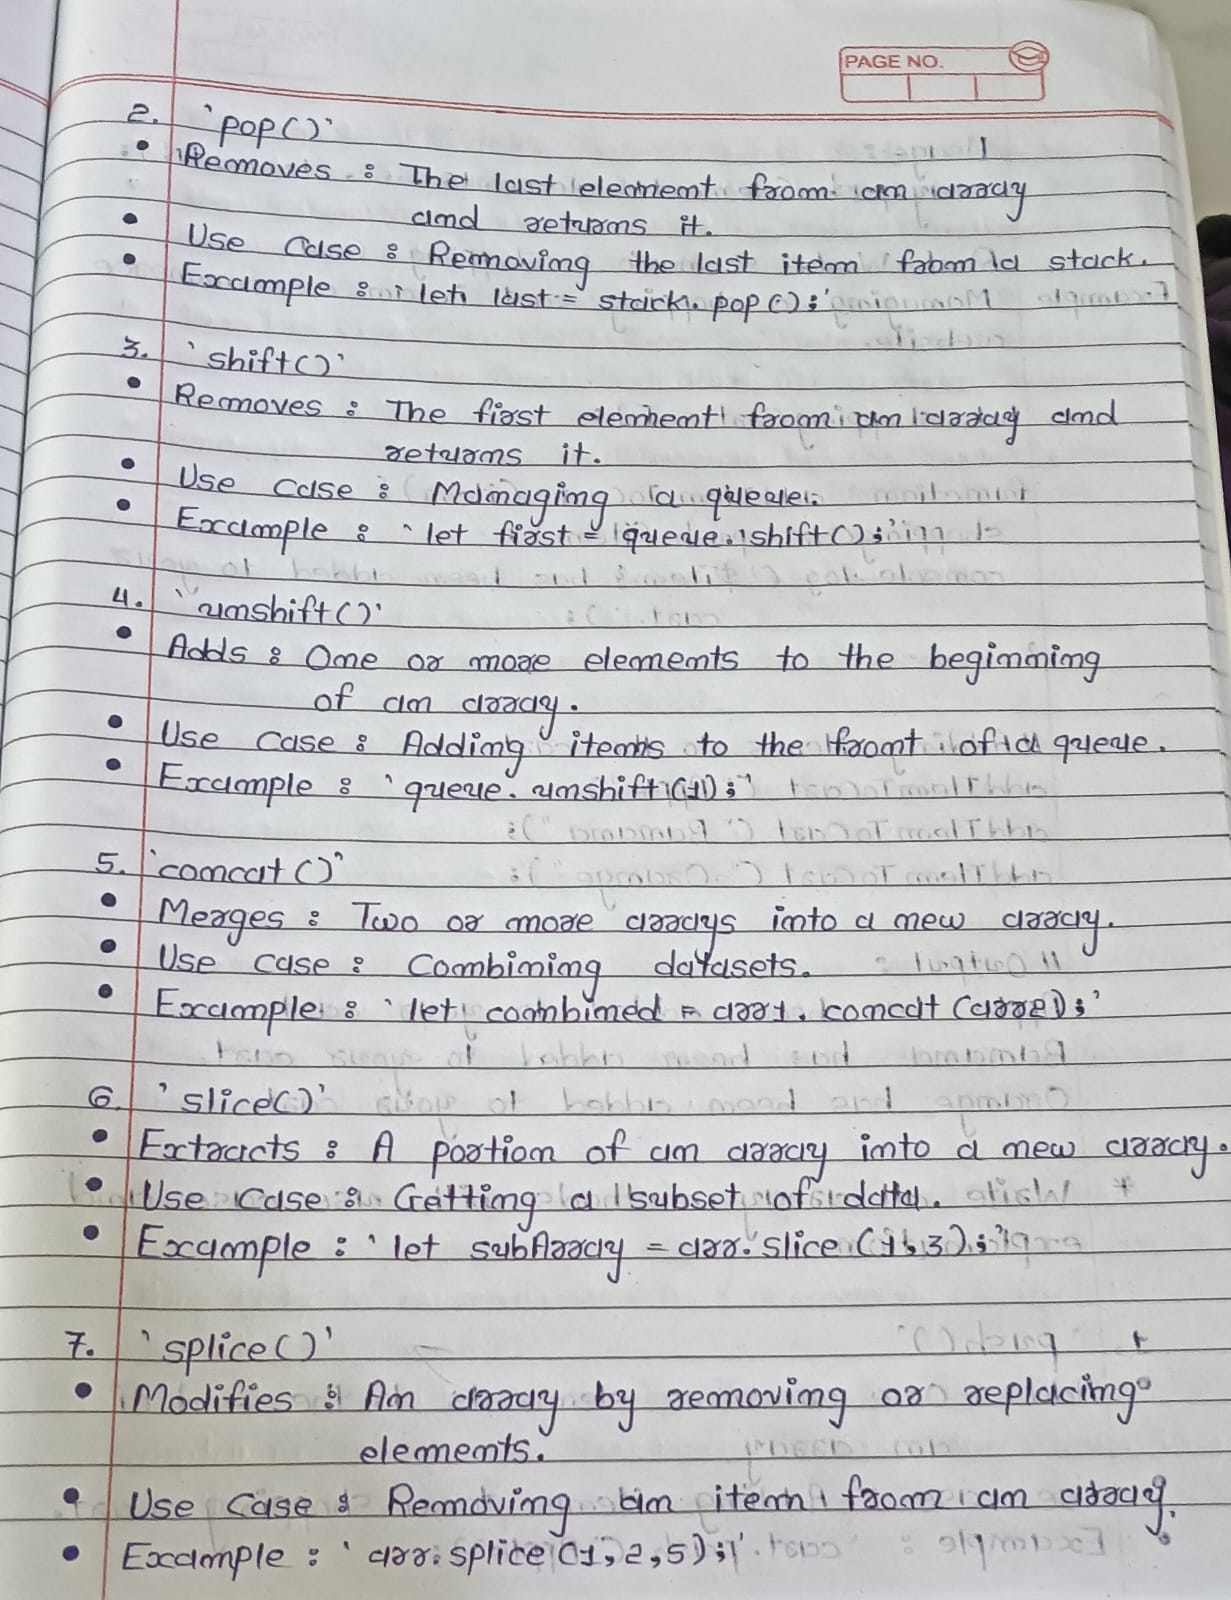 PAGE NO.
2. `pop()`
• Removes : The last element from an array
and returns it.
• Use Case : Removing the last item from a stack.
• Example : `let last = stack.pop();`
3. `shift()`
• Removes : The first element from an array and
returns it.
• Use Case : Managing a queue.
• Example : `let first = queue.shift();`
4. `unshift()`
• Adds : One or more elements to the beginning
of an array.
• Use Case : Adding items to the front of a queue.
• Example : `queue.unshift(1);`
5. `concat()`
• Merges : Two or more arrays into a new array.
• Use Case : Combining datasets.
• Example : `let combined = arr1.concat(arr2);`
6. `slice()`
• Extracts : A portion of an array into a new array.
• Use Case : Getting a subset of data.
• Example : `let subArray = arr.slice(1,3);`
7. `splice()`
• Modifies : An array by removing or replacing
elements.
• Use Case : Removing an item from an array.
• Example : `arr.splice(1,2,5);`